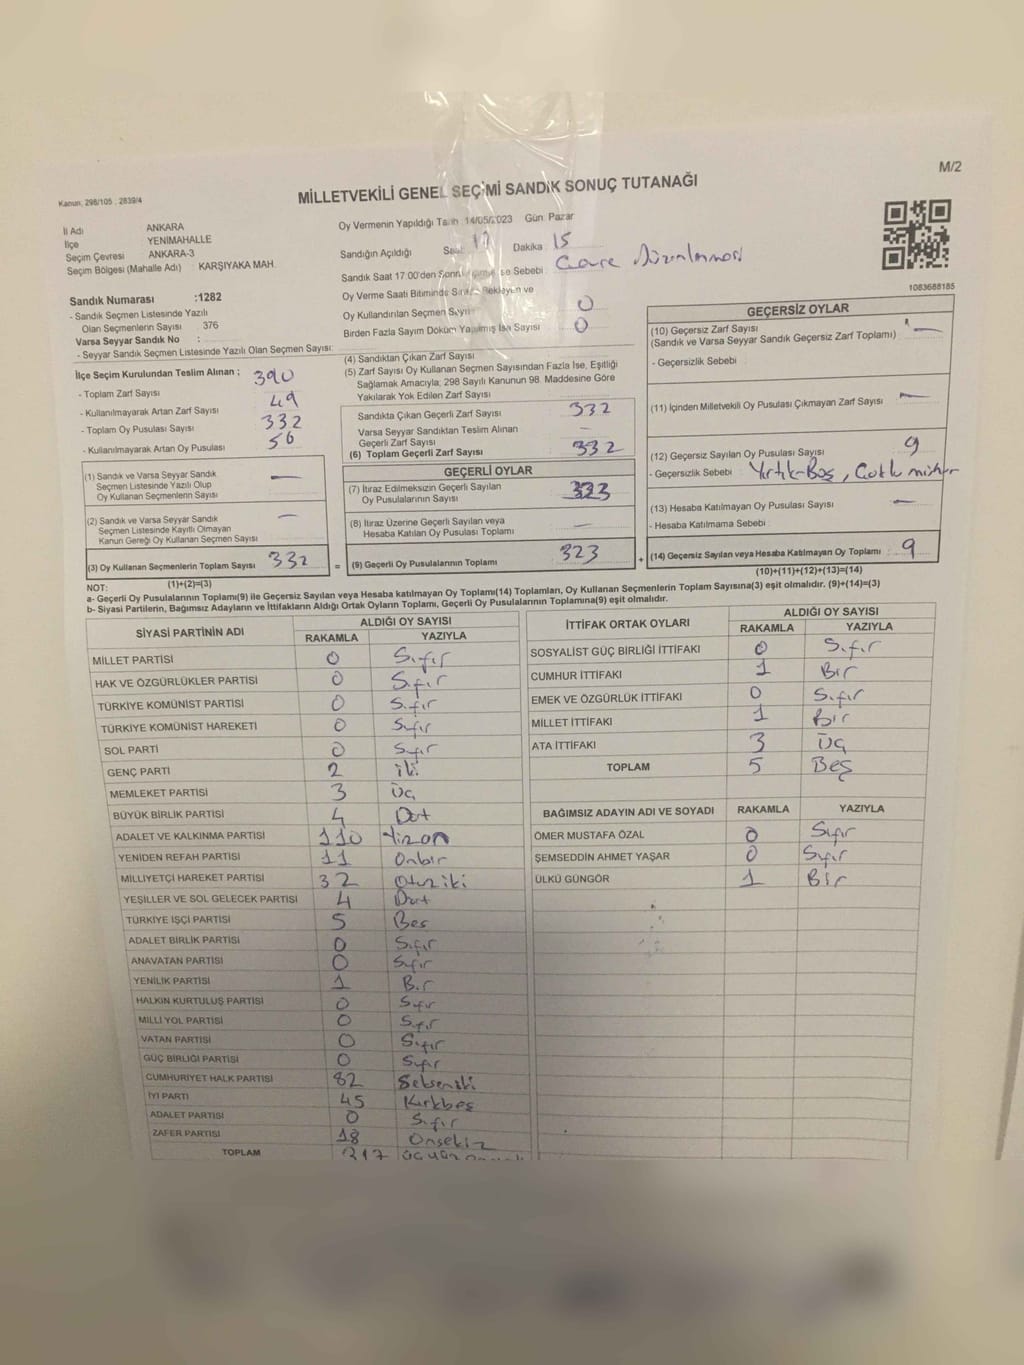 M/2
Kanun, 298/105 , 2839/4
MİLLETVEKİLİ GENEL SEÇİMİ SANDIK SONUÇ TUTANAĞI
İl Adı ANKARA
İlçe YENİMAHALLE
Seçim Çevresi ANKARA-3
Seçim Bölgesi (Mahalle Adı) : KARŞIYAKA MAH.
Oy Vermenin Yapıldığı Tarih : 14/05/2023 Gün: Pazar
Sandığın Açıldığı Saat: 17 Dakika : 15
Sandık Saat 17.00'den Sonra se Sebebi : Düzenlemesi
1083688185
Sandık Numarası :1282
- Sandık Seçmen Listesinde Yazılı
Olan Seçmenlerin Sayısı : 376
Varsa Seyyar Sandık No :
- Seyyar Sandık Seçmen Listesinde Yazılı Olan Seçmen Sayısı:
Oy Verme Saati Bitiminde Sırada Bekleyen ve
Oy Kullandırılan Seçmen Sayısı 0
Birden Fazla Sayım Döküm Yapılmış İse Sayısı 0
İlçe Seçim Kurulundan Teslim Alınan : 390
- Toplam Zarf Sayısı
- Kullanılmayarak Artan Zarf Sayısı 49
- Toplam Oy Pusulası Sayısı 332
- Kullanılmayarak Artan Oy Pusulası 56
(1) Sandık ve Varsa Seyyar Sandık
Seçmen Listesinde Yazılı Olup
Oy Kullanan Seçmenlerin Sayısı —
(2) Sandık ve Varsa Seyyar Sandık
Seçmen Listesinde Kayıtlı Olmayan
Kanun Gereği Oy Kullanan Seçmen Sayısı —
(3) Oy Kullanan Seçmenlerin Toplam Sayısı 332
(1)+(2)=(3)
(4) Sandıktan Çıkan Zarf Sayısı
(5) Zarf Sayısı Oy Kullanan Seçmen Sayısından Fazla İse, Eşitliği
Sağlamak Amacıyla; 298 Sayılı Kanunun 98. Maddesine Göre
Yakılarak Yok Edilen Zarf Sayısı
Sandıkta Çıkan Geçerli Zarf Sayısı 332
Varsa Seyyar Sandıktan Teslim Alınan
Geçerli Zarf Sayısı —
(6) Toplam Geçerli Zarf Sayısı 332
GEÇERLİ OYLAR
(7) İtiraz Edilmeksizin Geçerli Sayılan
Oy Pusulalarının Sayısı 323
(8) İtiraz Üzerine Geçerli Sayılan veya
Hesaba Katılan Oy Pusulası Toplamı —
= (9) Geçerli Oy Pusulalarının Toplamı 323
GEÇERSİZ OYLAR
(10) Geçersiz Zarf Sayısı
(Sandık ve Varsa Seyyar Sandık Geçersiz Zarf Toplamı) —
- Geçersizlik Sebebi
(11) İçinden Milletvekili Oy Pusulası Çıkmayan Zarf Sayısı —
(12) Geçersiz Sayılan Oy Pusulası Sayısı 9
- Geçersizlik Sebebi : Yırtık-Boş,
(13) Hesaba Katılmayan Oy Pusulası Sayısı —
- Hesaba Katılmama Sebebi
+ (14) Geçersiz Sayılan veya Hesaba Katılmayan Oy Toplamı : 9
(10)+(11)+(12)+(13)=(14)
NOT:
a- Geçerli Oy Pusulalarının Toplamı(9) ile Geçersiz Sayılan veya Hesaba katılmayan Oy Toplamı(14) Toplamları, Oy Kullanan Seçmenlerin Toplam Sayısına(3) eşit olmalıdır. (9)+(14)=(3)
b- Siyasi Partilerin, Bağımsız Adayların ve İttifakların Aldığı Ortak Oyların Toplamı, Geçerli Oy Pusulalarının Toplamına(9) eşit olmalıdır.
SİYASİ PARTİNİN ADI ALDIĞI OY SAYISI
RAKAMLA YAZIYLA
MİLLET PARTİSİ 0 Sıfır
HAK VE ÖZGÜRLÜKLER PARTİSİ 0 Sıfır
TÜRKİYE KOMÜNİST PARTİSİ 0 Sıfır
TÜRKİYE KOMÜNİST HAREKETİ 0 Sıfır
SOL PARTİ 0 Sıfır
GENÇ PARTİ 2 iki
MEMLEKET PARTİSİ 3 Üç
BÜYÜK BİRLİK PARTİSİ 4 Dört
ADALET VE KALKINMA PARTİSİ 110 Yüzon
YENİDEN REFAH PARTİSİ 11 Onbir
MİLLİYETÇİ HAREKET PARTİSİ 32 Otuziki
YEŞİLLER VE SOL GELECEK PARTİSİ 4 Dört
TÜRKİYE İŞÇİ PARTİSİ 5 Beş
ADALET BİRLİK PARTİSİ 0 Sıfır
ANAVATAN PARTİSİ 0 Sıfır
YENİLİK PARTİSİ 1 Bir
HALKIN KURTULUŞ PARTİSİ 0 Sıfır
MİLLİ YOL PARTİSİ 0 Sıfır
VATAN PARTİSİ 0 Sıfır
GÜÇ BİRLİĞİ PARTİSİ 0 Sıfır
CUMHURİYET HALK PARTİSİ 82 Sekseniki
İYİ PARTİ 45 Kırkbeş
ADALET PARTİSİ 0 Sıfır
ZAFER PARTİSİ 18 Onsekiz
TOPLAM 317
İTTİFAK ORTAK OYLARI ALDIĞI OY SAYISI
RAKAMLA YAZIYLA
SOSYALİST GÜÇ BİRLİĞİ İTTİFAKI 0 Sıfır
CUMHUR İTTİFAKI 1 Bir
EMEK VE ÖZGÜRLÜK İTTİFAKI 0 Sıfır
MİLLET İTTİFAKI 1 Bir
ATA İTTİFAKI 3 Üç
TOPLAM 5 Beş
BAĞIMSIZ ADAYIN ADI VE SOYADI RAKAMLA YAZIYLA
ÖMER MUSTAFA ÖZAL 0 Sıfır
ŞEMSEDDİN AHMET YAŞAR 0 Sıfır
ÜLKÜ GÜNGÖR 1 Bir